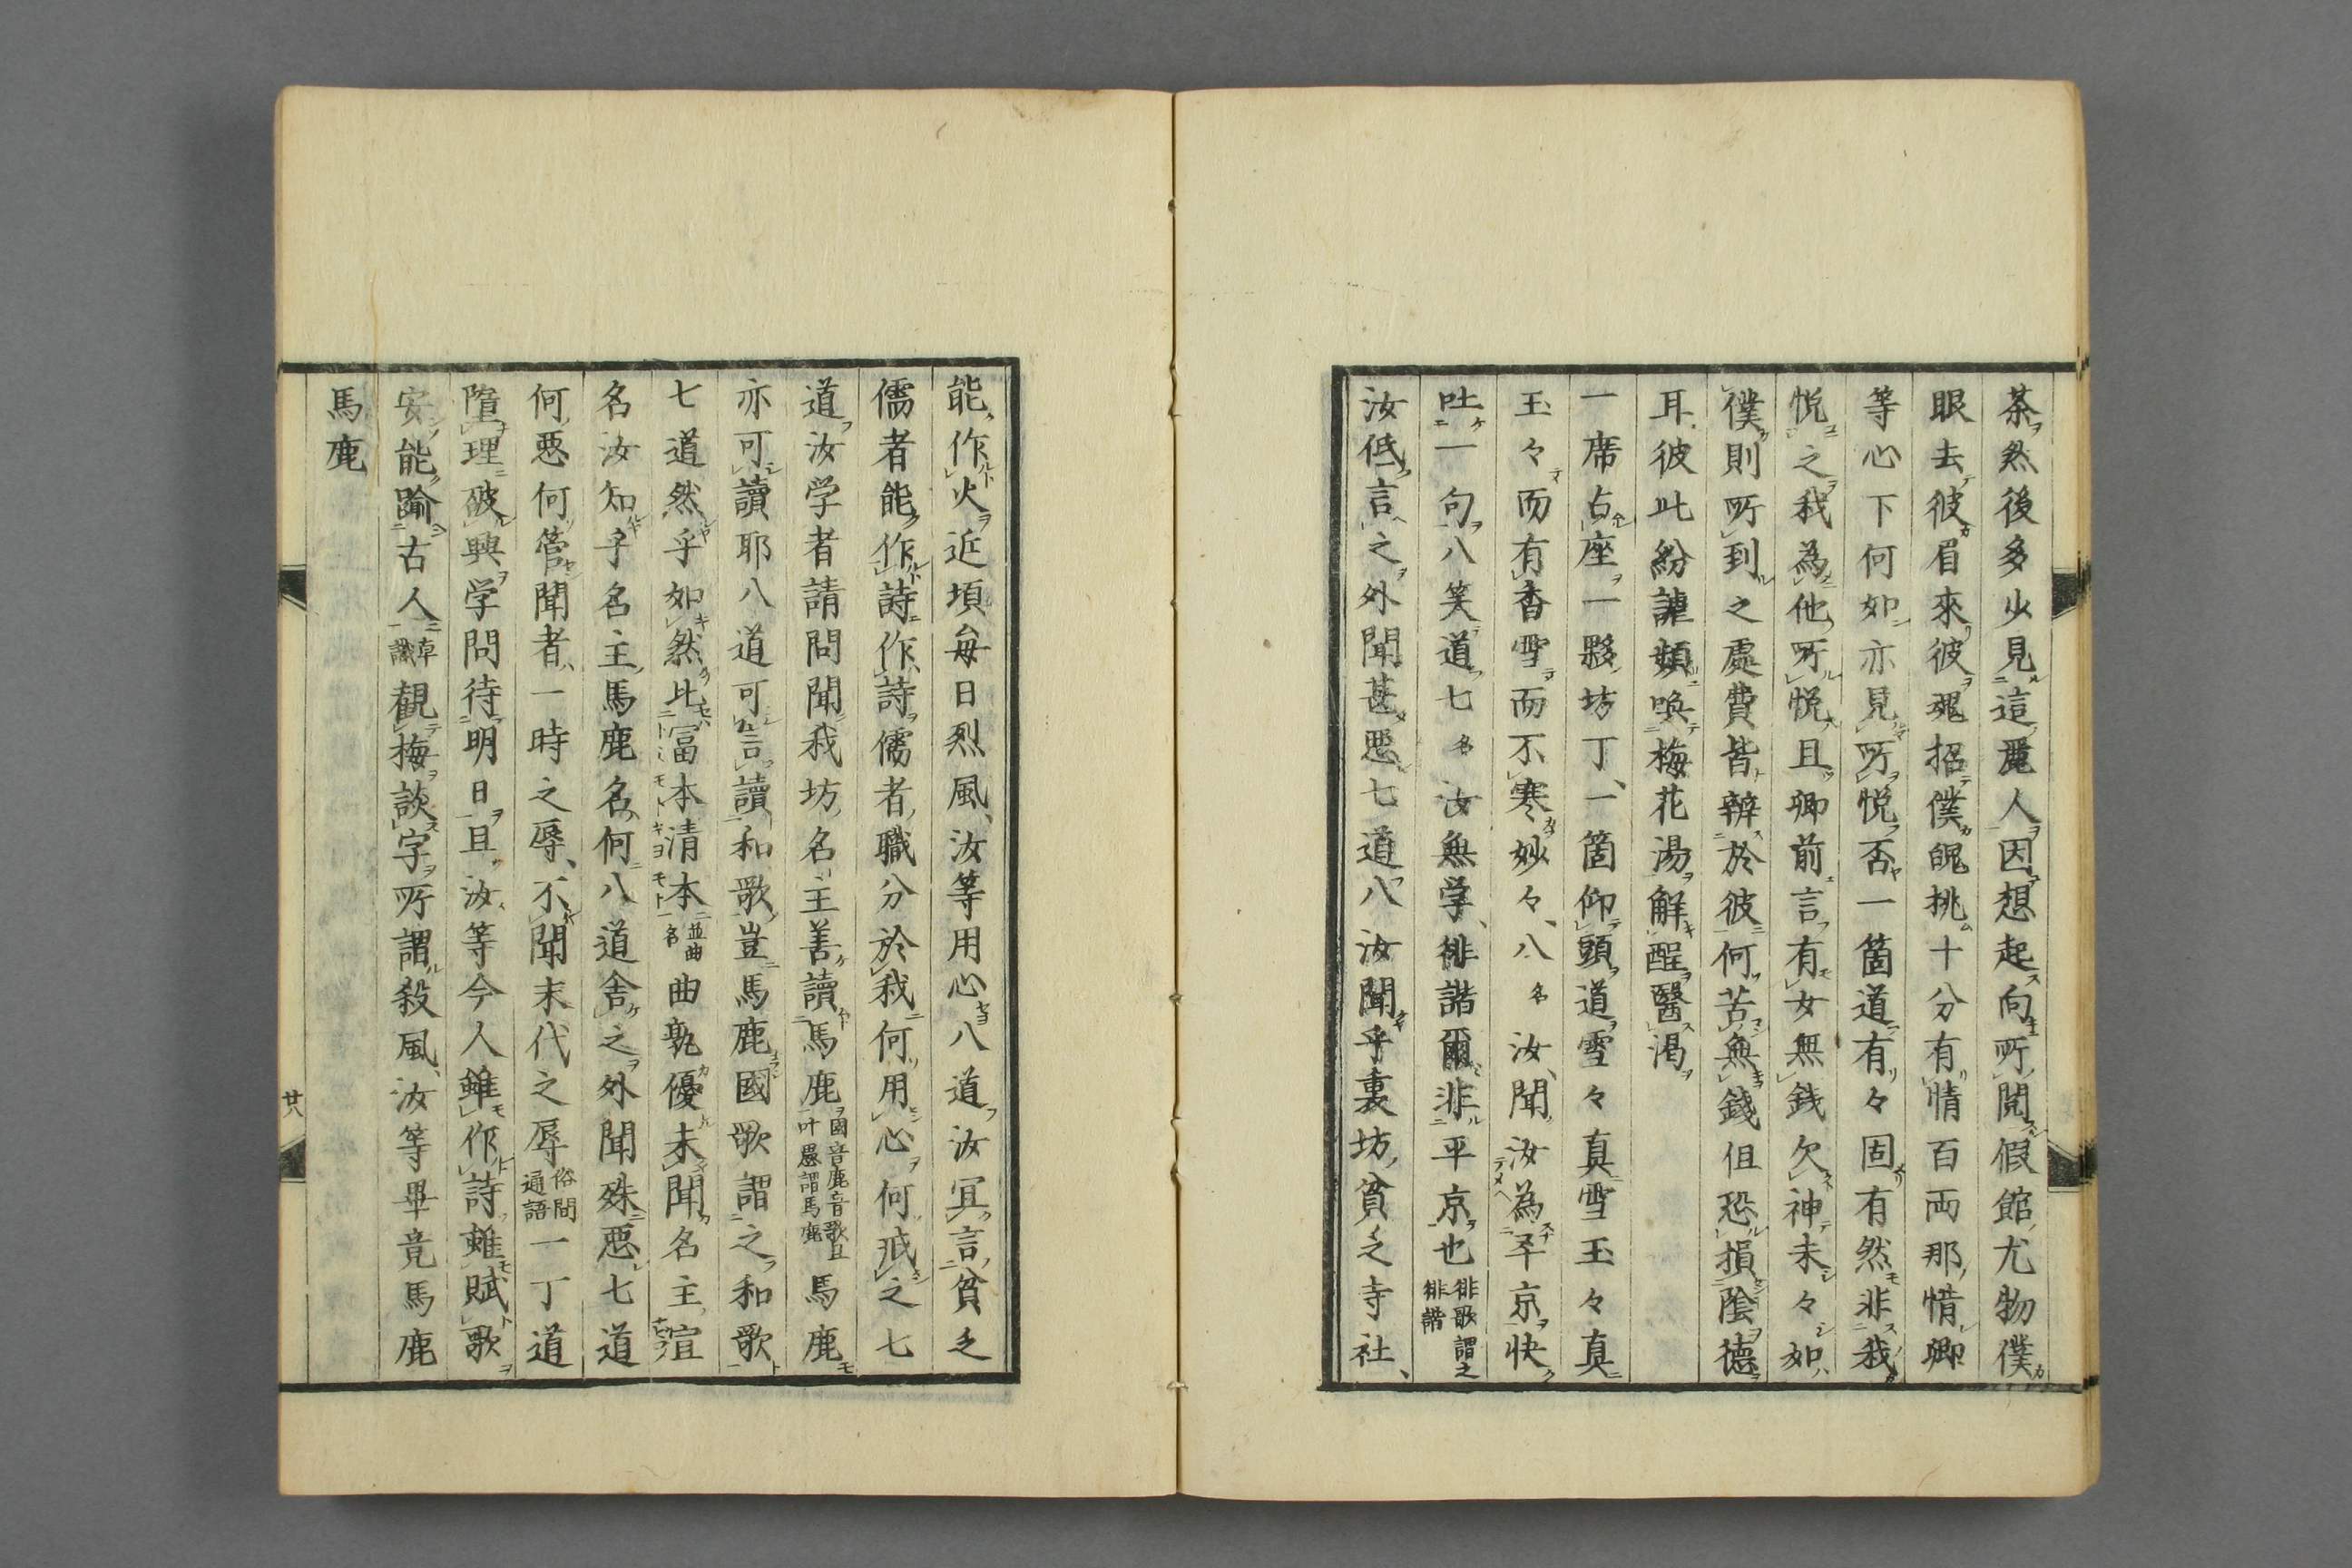 茶然後多少見這麗人因想起向所閲假館尤物僕
眼去彼眉來彼魂招僕魄挑十分有情百両那惜卿
等心下何如亦見所悦否一箇道有々固有然非我
悦之我為他所悦且卿前言有女無銭欠神未々如
僕則所到之處費皆辨於彼何苦無錢但恐損陰德
耳彼此紛謔頻喚梅花湯解酲醫渇
一席占座一夥坊丁一箇仰頭道雪々真雪玉々真
玉々而有香雪而不寒妙々八名汝聞汝為平京快
吐一句八笑道七名汝無学俳諧爾非平京也俳歌謂之俳諧
汝低言之外聞甚悪七道八汝聞乎裏坊貧乏寺社
能作火近頃毎日烈風汝等用心八道汝冝言貧乏
儒者能作詩作詩儒者職分於我何用心何戒之七
道汝学者請問聞我坊名主善讀馬鹿國音鹿音歌且叶愚謂馬鹿馬鹿
亦可讀耶八道可言讀和歌豈馬鹿國歌謂之和歌
七道然乎如然比冨本清本並曲名曲孰優未聞名主渲
名汝知乎名主馬鹿名何八道舎之外聞殊悪七道
何悪何管聞者一時之辱不聞末代之辱俗間通語一丁道
墮理破興学問待明日且汝等今人雖作詩雖賦歌
安能踰古人卓識観梅談字所謂殺風汝等畢竟馬鹿
馬鹿
廿八